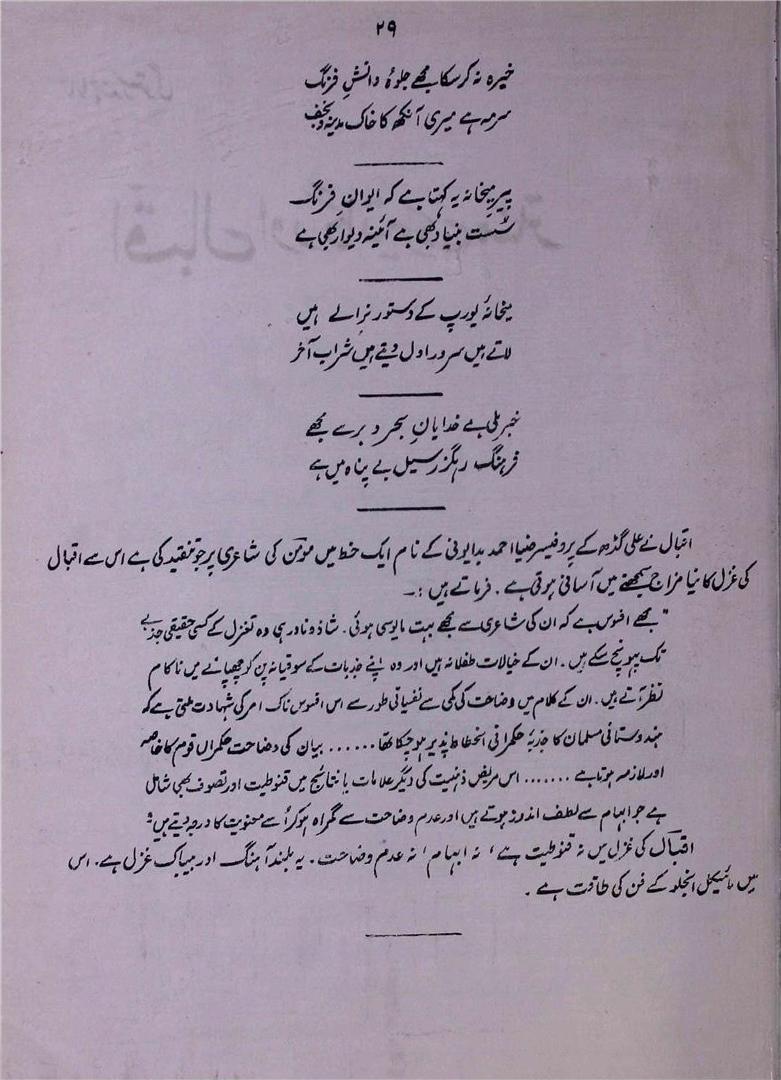 ۲۹
خیرہ نہ کر سکا مجھے جلوۂ دانشِ فرنگ
سرمہ ہے میری آنکھ کا خاک مدینہ و نجف
پیرِ میخانہ یہ کہتا ہے کہ ایوانِ فرنگ
سُست بنیاد بھی ہے آئینہ دیوار بھی ہے
میخانۂ یورپ کے دستور نرالے ہیں
لاتے ہیں سرور اول دیتے ہیں شراب آخر
خبر ملی ہے خدایانِ بحر و بر سے مجھے
فرہنگ رہگزر سیل بے پناہ میں ہے
اقبال نے علی گڈھ کے پروفیسر ضیا احمد بدایونی کے نام ایک خط میں مومن کی شاعری پر جو تنقید کی ہے اس سے اقبال
کی غزل کا نیا مزاج سمجھنے میں آسانی ہوتی ہے۔ فرماتے ہیں :۔
"مجھے افسوس ہے کہ ان کی شاعری سے مجھے بہت مایوسی ہوئی۔ شاذ و نادر ہی وہ تغزل کے کسی حقیقی جذبے
تک پہونچ سکے ہیں۔ ان کے خیالات طفلانہ ہیں اور وہ اپنے جذبات کے سوقیانہ پن کو چھپانے میں ناکام
نظر آتے ہیں۔ ان کے کلام میں وضاحت کی کمی سے نفسیاتی طور سے اس افسوس ناک امر کی شہادت ملتی ہے کہ
ہندوستانی مسلمان کا جذبۂ حکمرانی انحطاط پذیر ہو چکا تھا ...... بیان کی وضاحت حکمراں قوم کا خاصہ
اور لازمہ ہوتا ہے ....... اس مریض ذہنیت کی دیگر علامات یا نتائج میں قنوطیت اور تصوف بھی شامل
ہے جو ابہام سے لطف اندوز ہوتے ہیں اور عدم وضاحت سے گمراہ ہو کر اُسے معنویت کا درجہ دیتے ہیں"
اقبال کی غزل میں نہ قنوطیت ہے، نہ ابہام، نہ عدم وضاحت۔ یہ بلند آہنگ اور بیباک غزل ہے۔ اس
میں مائیکل انجلو کے فن کی طاقت ہے۔